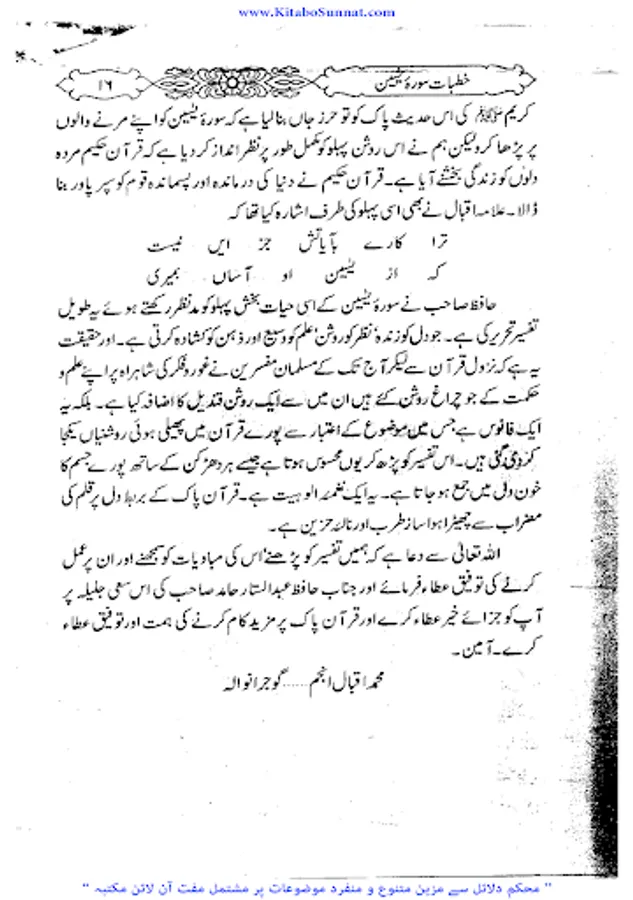 www.KitaboSunnat.com
خطبات سورۂ یٰسین
۱۶
کریم ﷺ کی اس حدیث پاک کو تو حرز جاں بنا لیا ہے کہ سورۂ یٰسین کو اپنے مرنے والوں
پر پڑھا کرو لیکن ہم نے اس روشن پہلو کو مکمل طور پر نظر انداز کر دیا ہے کہ قرآن حکیم مردہ
دلوں کو زندگی بخشنے آیا ہے۔ قرآن حکیم نے دنیا کی درماندہ اور پسماندہ قوم کو سپر پاور بنا
ڈالا۔ علامہ اقبال نے بھی اسی پہلو کی طرف اشارہ کیا تھا کہ
ترا کارے بآیاتش جز ایں نیست
کہ از یٰسین او آساں بمیری
حافظ صاحب نے سورۂ یٰسین کے اسی حیات بخش پہلو کو مدنظر رکھتے ہوئے یہ طویل
تفسیر تحریر کی ہے۔ جو دل کو زندہ نظر کو روشن علم کو وسیع اور ذہن کو کشادہ کرتی ہے۔ اور حقیقت
یہ ہے کہ نزول قرآن سے لیکر آج تک کے مسلمان مفسرین نے غور و فکر کی شاہراہ پر اپنے علم و
حکمت کے جو چراغ روشن کئے ہیں ان میں سے ایک روشن قندیل کا اضافہ کیا ہے۔ بلکہ یہ
ایک فانوس ہے جس میں موضوع کے اعتبار سے پورے قرآن میں پھیلی ہوئی روشنیاں یکجا
کر دی گئی ہیں۔ اس تفسیر کو پڑھ کر یوں محسوس ہوتا ہے جیسے ہر دھڑکن کے ساتھ پورے جسم کا
خون دل میں جمع ہو جاتا ہے۔ یہ ایک نغمۂ الوہیت ہے۔ قرآن پاک کے بربط دل پر قلم کی
مضراب سے چھیڑا ہوا ساز طرب اور نالۂ حزین ہے۔
اللہ تعالیٰ سے دعا ہے کہ ہمیں تفسیر کو پڑھنے اس کی مبادیات کو سمجھنے اور ان پر عمل
کرنے کی توفیق عطاء فرمائے اور جناب حافظ عبدالستار حامد صاحب کی اس سعی جلیلہ پر
آپ کو جزائے خیر عطاء کرے اور قرآن پاک پر مزید کام کرنے کی ہمت اور توفیق عطاء
کرے۔ آمین۔
محمد اقبال انجم ...... گوجرانوالہ
" محکم دلائل سے مزین متنوع و منفرد موضوعات پر مشتمل مفت آن لائن مکتبہ "